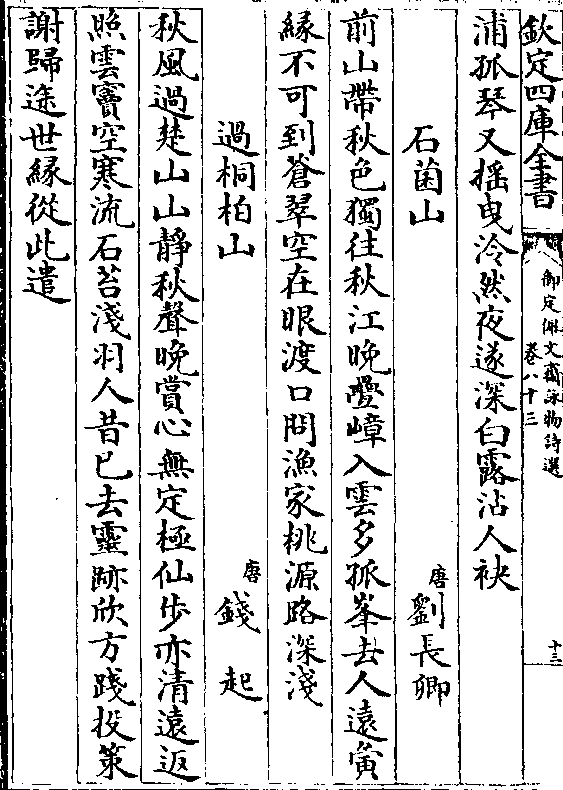 欽定四庫全書
御定佩文齋詠物詩選
卷八十三
十三
浦孤琴又搖曳泠然夜遂深白露沾人袂
石菌山
唐
劉長卿
前山帶秋色獨往秋江晚疊嶂入雲多孤峯去人遠夤
緣不可到蒼翠空在眼渡口問漁家桃源路深淺
過桐柏山
唐
錢起
秋風過楚山山靜秋聲晚賞心無定極仙步亦清遠返
照雲竇空寒流石苔淺羽人昔已去靈跡欣方踐投策
謝歸途世緣從此遣